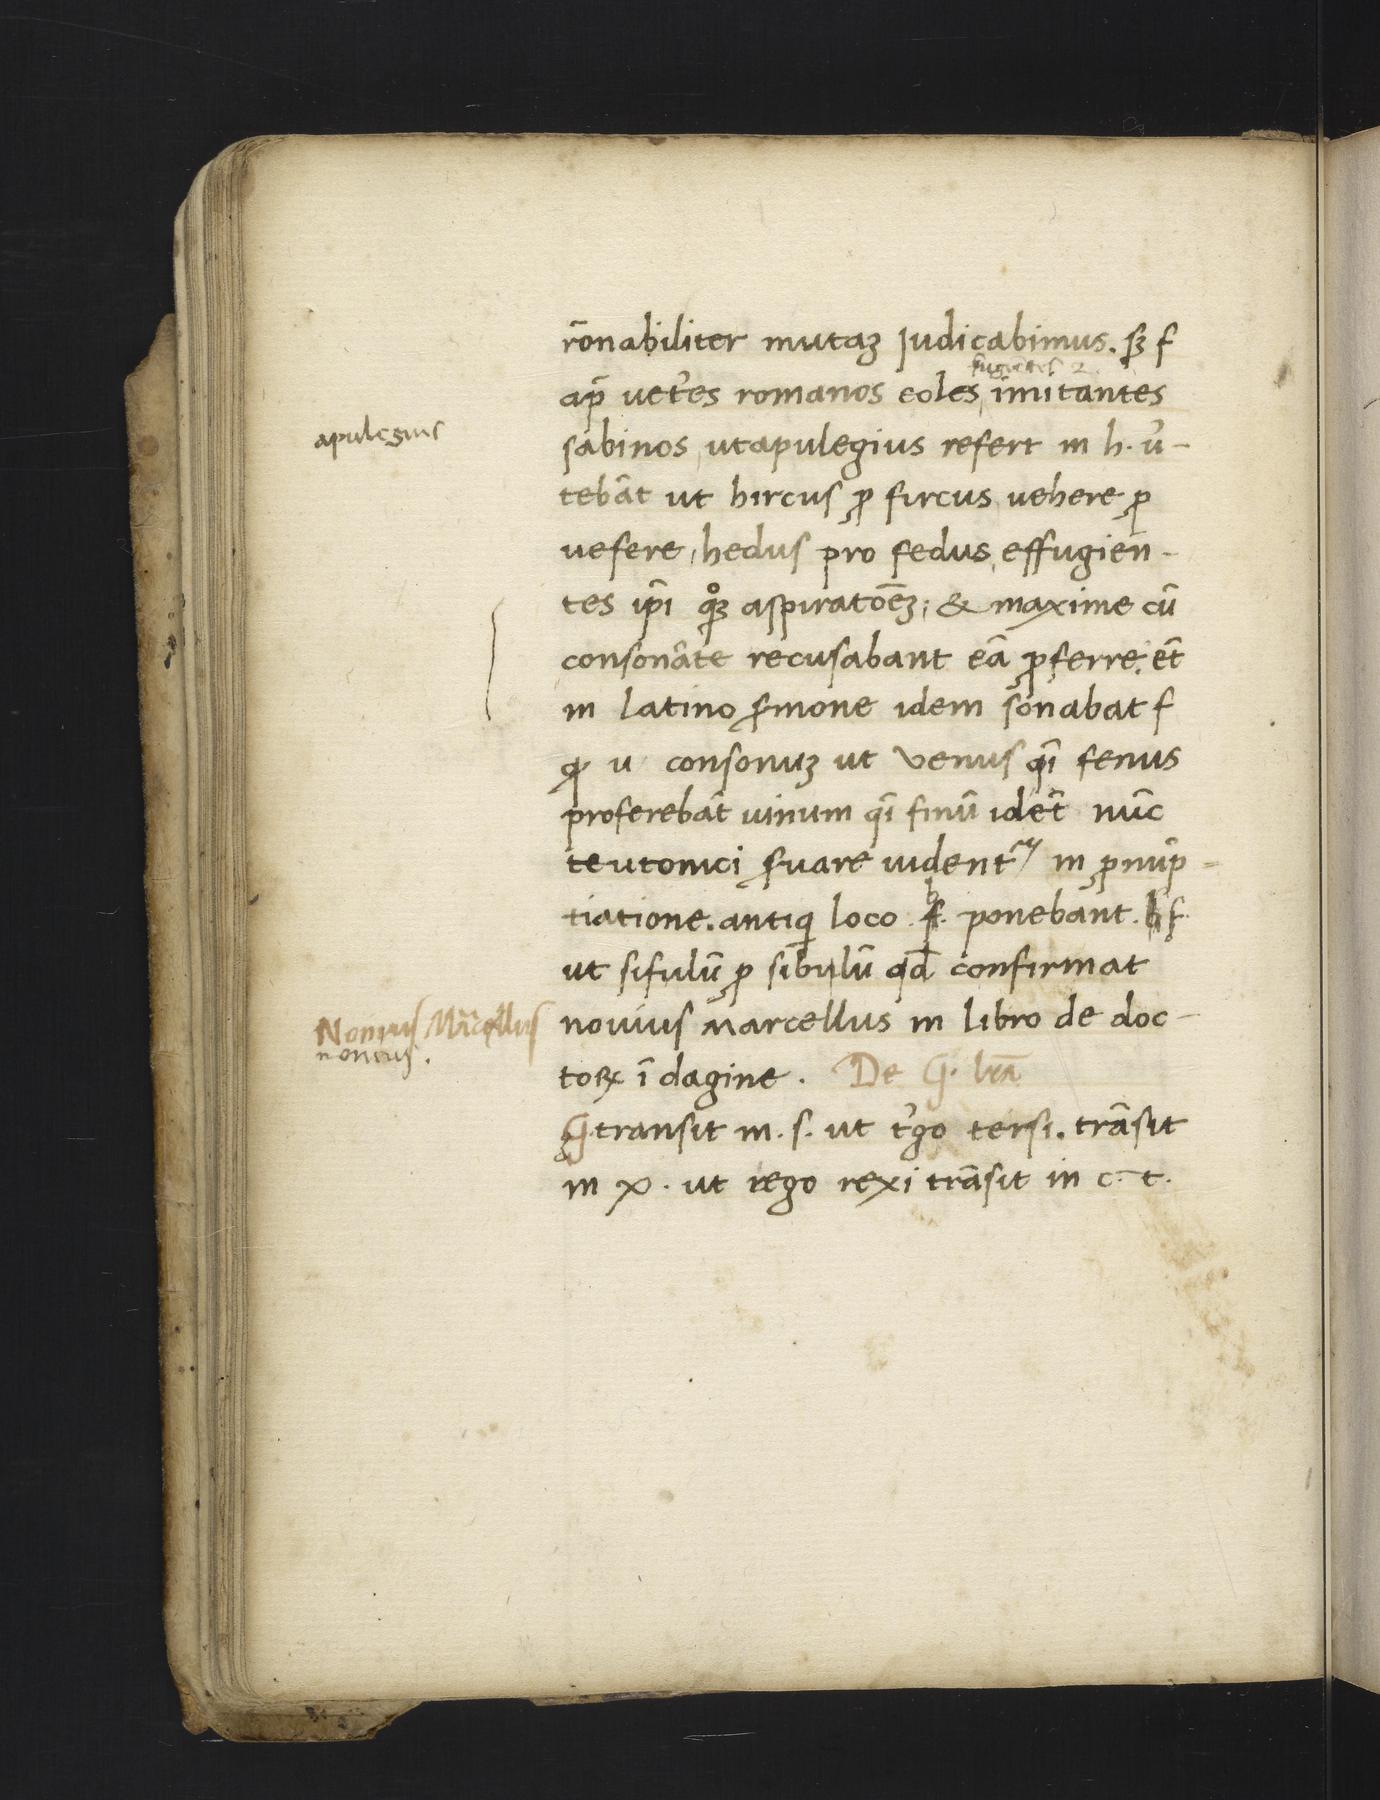 rōnabiliter mutaꝫ Judicabimus. sꝫ f
fugiētes &
ap̄ vet̉es romanos eoles, imitantes
apulegius
sabinos, ut apulegius refert in h. v̉-
tebāt ut hircus ꝓ fircus, vehere ꝓ
vefere, hedus pro fedus, effugien-
tes ip̄i qͦꝫ aspiratōeꝫ; & maxime cū
consonāte recusabant eā ꝓferre. et̄
in latino ẜmone idem sonabat f
ꝙ u consonuꝫ ut venus qī fenus
proferebāt vinum qī finū idē nūc
teutonici ẜuare videntᷣ in ꝓnūp-
tiatione. antiqi loco .b. ponebant. f.
ut sifulū ꝓ sibilū qđ confirmat
Nonius M̄cellus
nonius.
nonius Marcellus in libro de doc-
toꝝ ī dagine. De G. lr̄a
G. transit in. s. ut t̉go tersi. trāsit
in x. ut rego rexi trāsit in c. t.